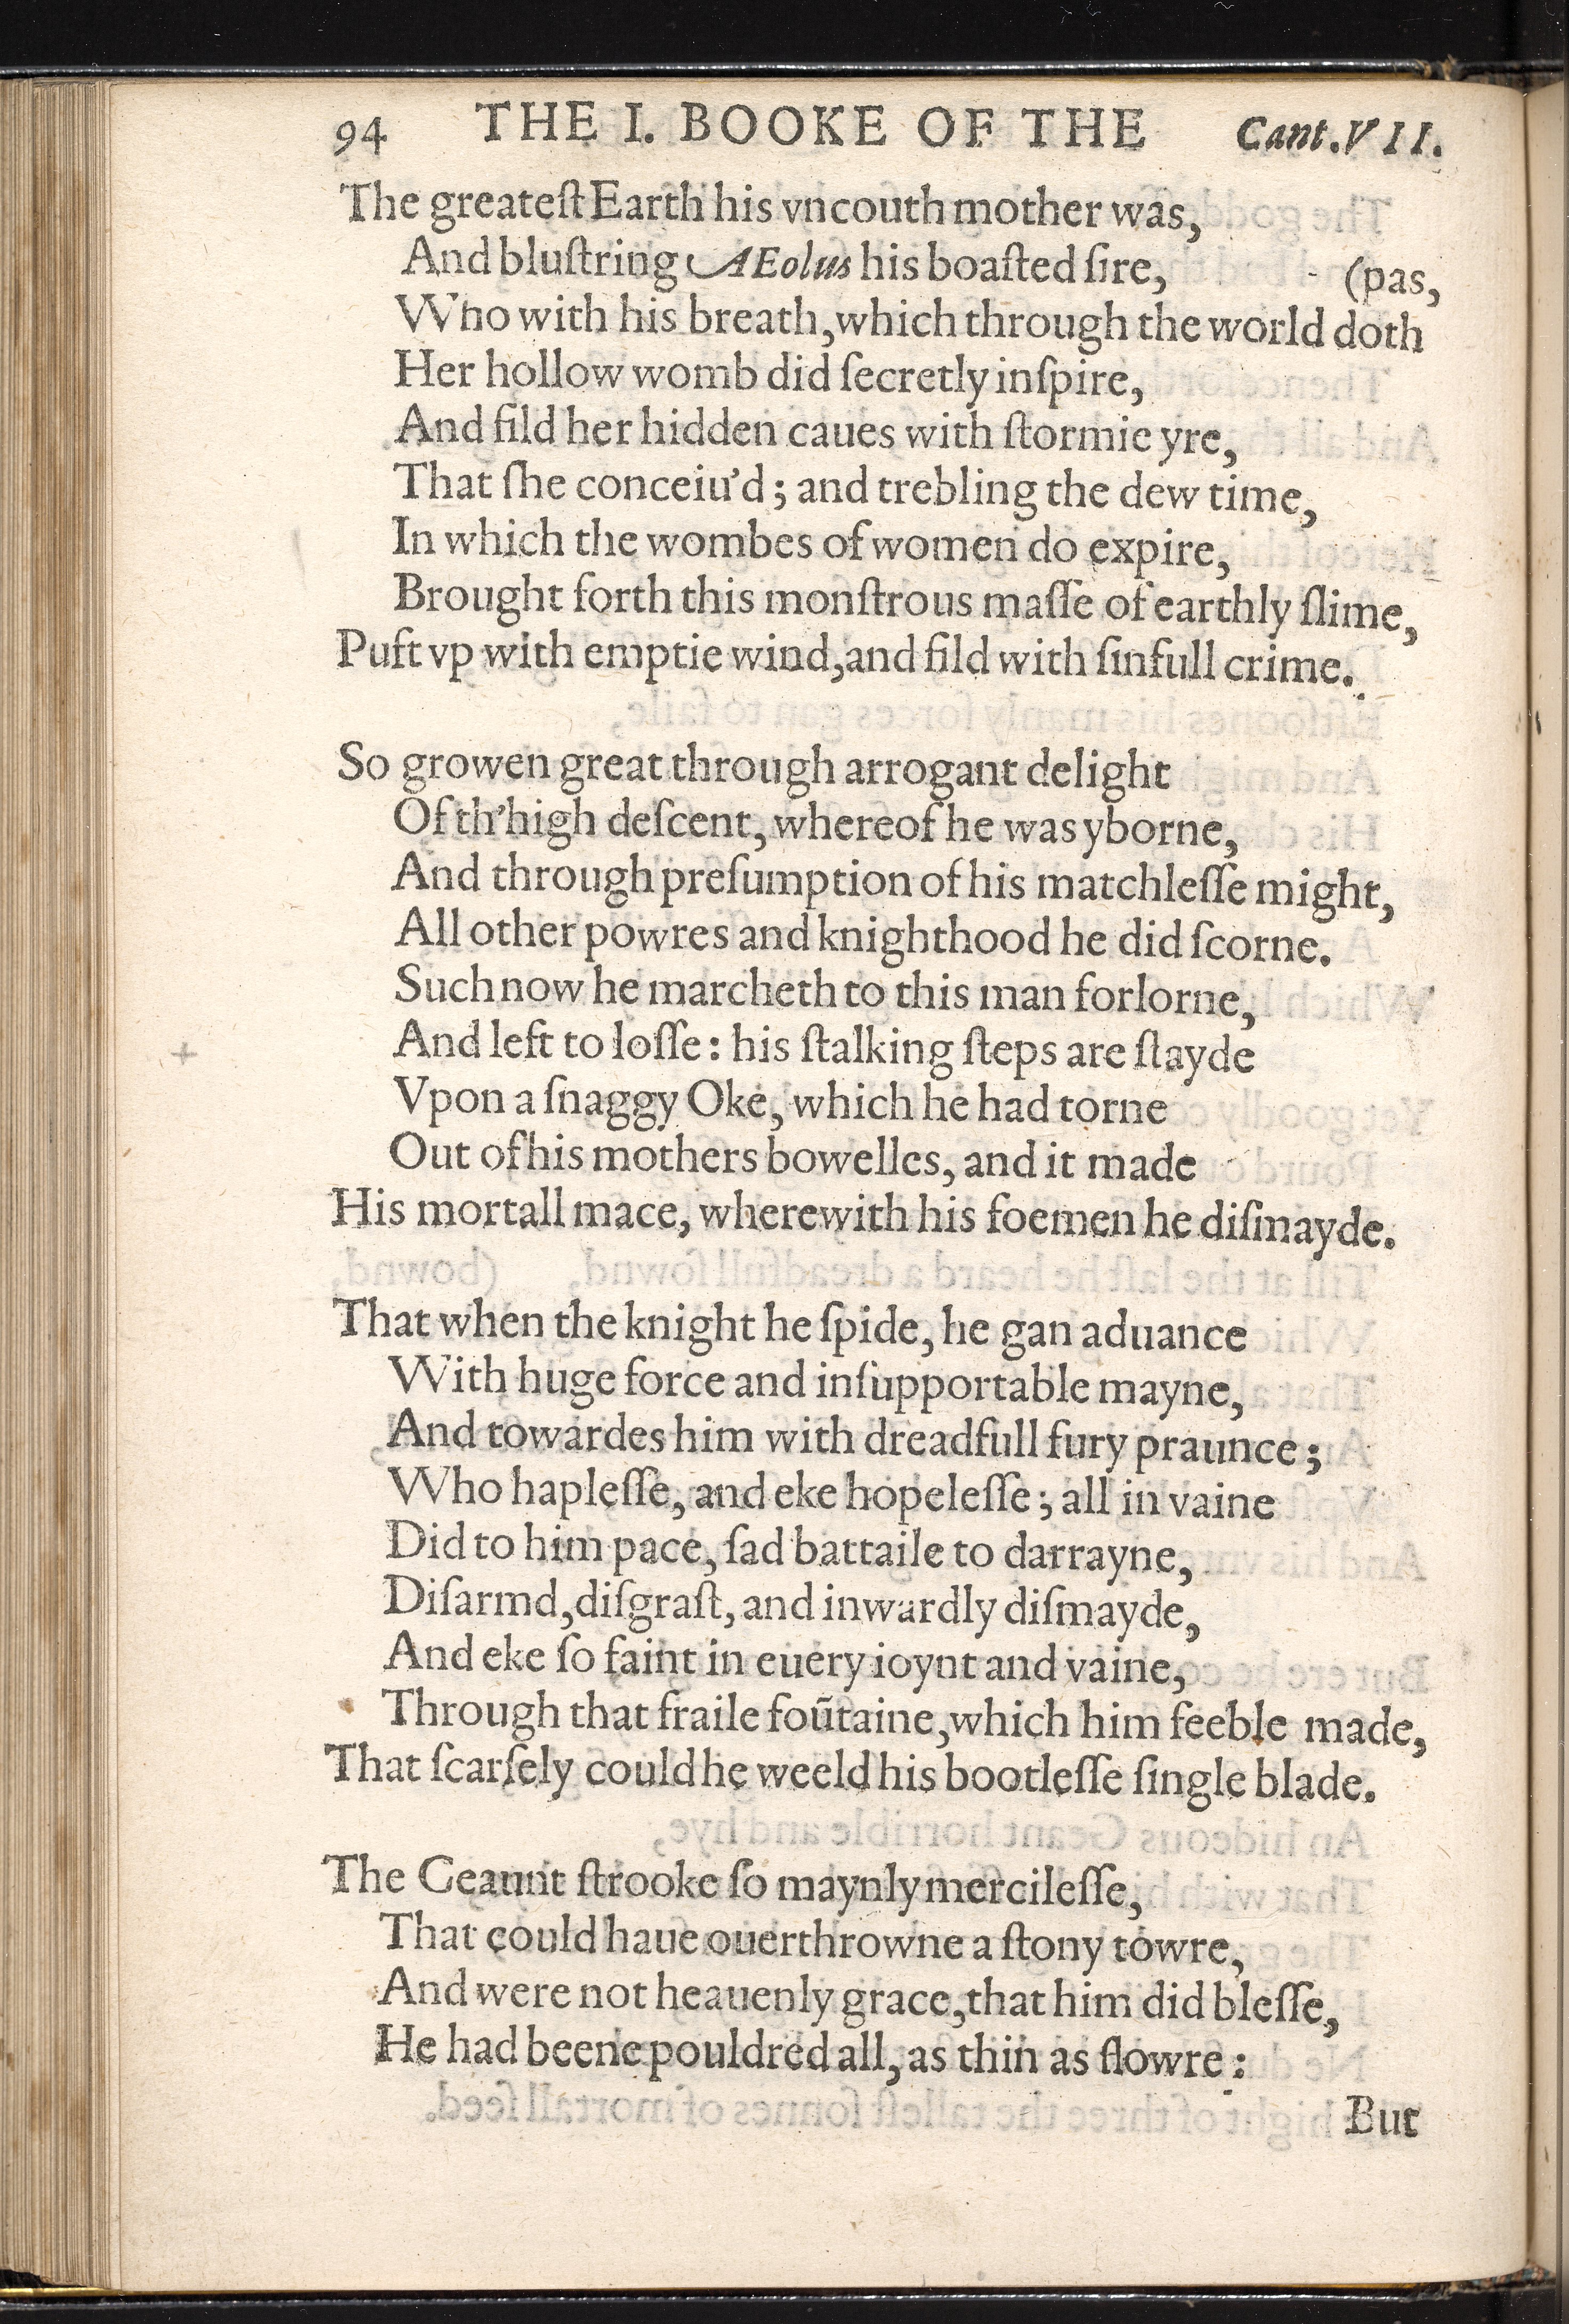 94 THE I. BOOKE OF THE Cant. VII.
The greateſt Earth his vncouth mother was,
And bluſtring AEolus his boaſted ſire, (pas,
Who with his breath, which through the world doth
Her hollow womb did ſecretly inſpire,
And fild her hidden caues with ſtormie yre,
That ſhe conceiu'd; and trebling the dew time,
In which the wombes of women do expire,
Brought forth this monſtrous maſſe of earthly ſlime,
Puft vp with emptie wind, and fild with ſinfull crime.
So growen great through arrogant delight
Of th'high deſcent, whereof he was yborne,
And through preſumption of his matchleſſe might,
All other powres and knighthood he did ſcorne.
Such now he marcheth to this man forlorne,
And left to loſſe: his ſtalking ſteps are ſtayde
Vpon a ſnaggy Oke, which he had torne
Out of his mothers bowelles, and it made
His mortall mace, wherewith his foemen he diſmayde.
That when the knight he ſpide, he gan aduance
With huge force and inſupportable mayne,
And towardes him with dreadfull fury praunce;
Who hapleſſe, and eke hopeleſſe; all in vaine
Did to him pace, ſad battaile to darrayne,
Diſarmd, diſgraſt, and inwardly diſmayde,
And eke ſo faint in euery ioynt and vaine,
Through that fraile foũtaine, which him feeble made,
That ſcarſely could he weeld his bootleſſe ſingle blade.
The Geaunt ſtrooke ſo maynly mercileſſe,
That could haue ouerthrowne a ſtony towre,
And were not heauenly grace, that him did bleſſe,
He had beene pouldred all, as thin as flowre:
But